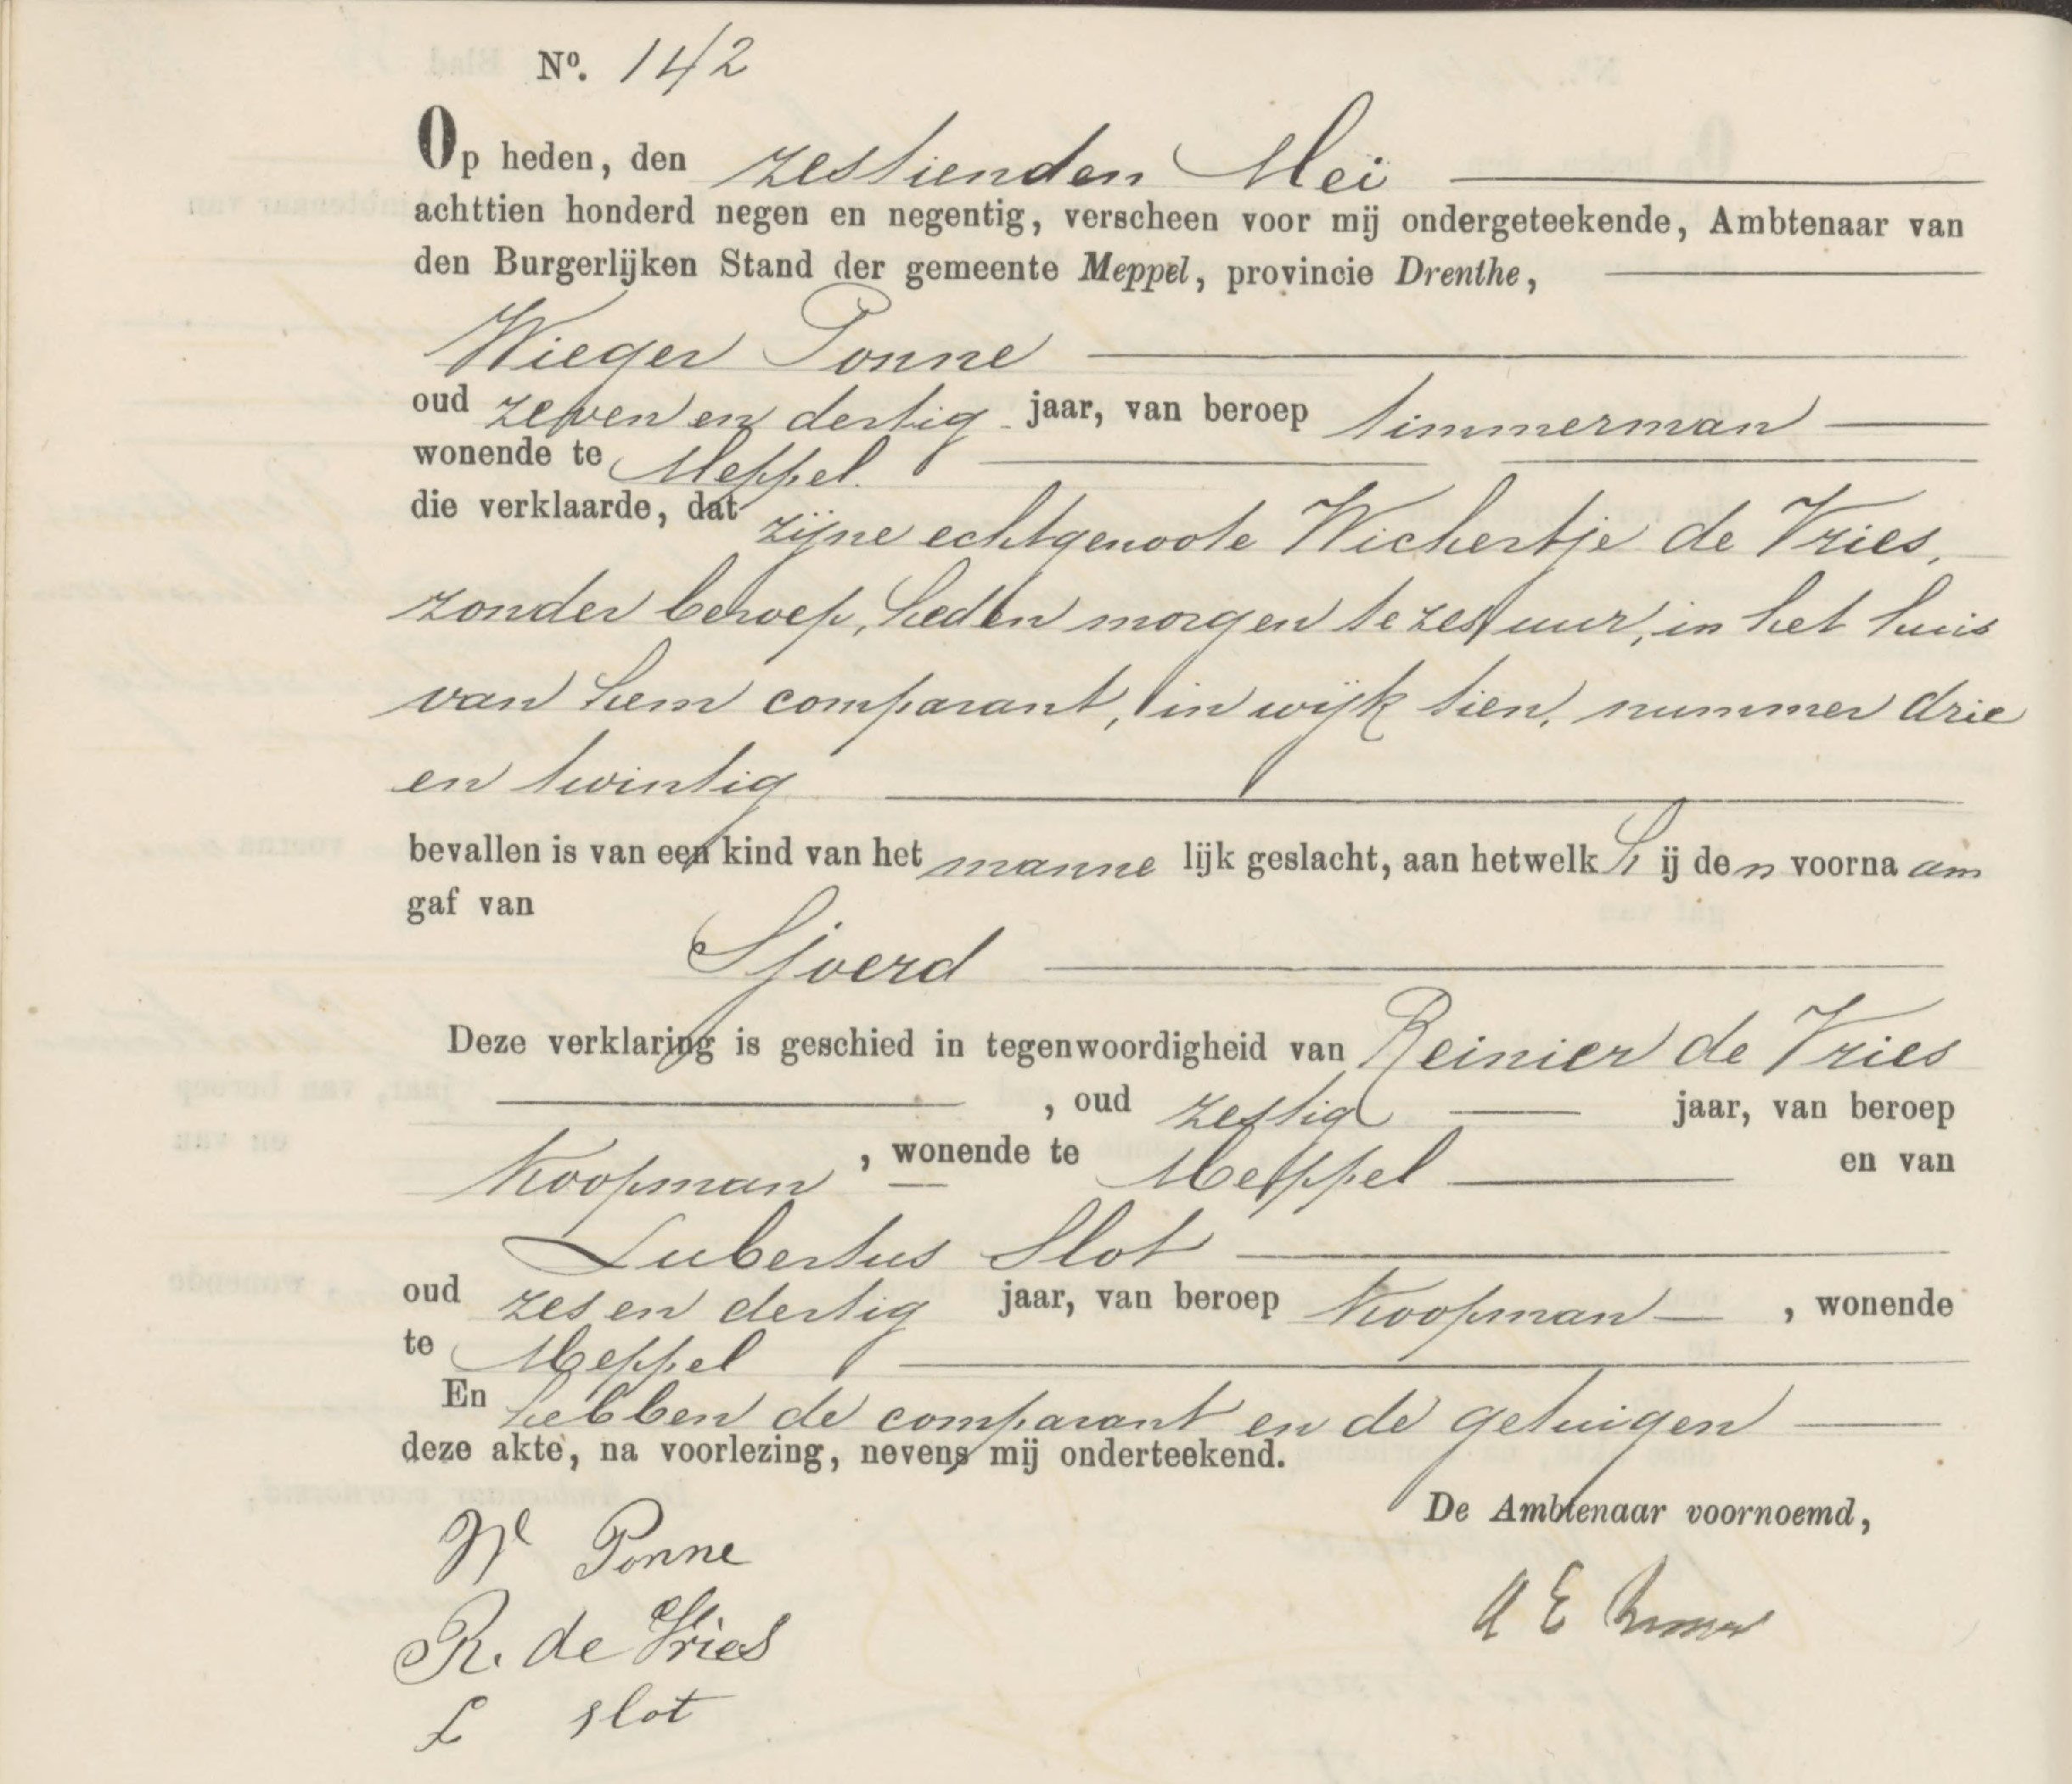 Nº. 142
Op heden, den zestienden Mei
achttien honderd negen en negentig, verscheen voor mij ondergeteekende, Ambtenaar van
den Burgerlijken Stand der gemeente Meppel, provincie Drenthe,
Wieger Ponne
oud zeven en dertig jaar, van beroep timmerman
wonende te Meppel.
die verklaarde, dat zijne echtgenoote Wichertje de Vries,
zonder beroep, heden morgen te zes uur, in het huis
van hem comparant, in wijk tien, nummer drie
en twintig
bevallen is van een kind van het manne lijk geslacht, aan hetwelk h ij de n voorna am
gaf van
Sjoerd
Deze verklaring is geschied in tegenwoordigheid van Reinier de Vries
, oud zestig jaar, van beroep
Koopman , wonende te Meppel en van
Lubertus Slot
oud zes en dertig jaar, van beroep Koopman , wonende
te Meppel
En hebben de comparant en de getuigen
deze akte, na voorlezing, nevens mij onderteekend.
De Ambtenaar voornoemd,
W Ponne
R. de Vries
L slot